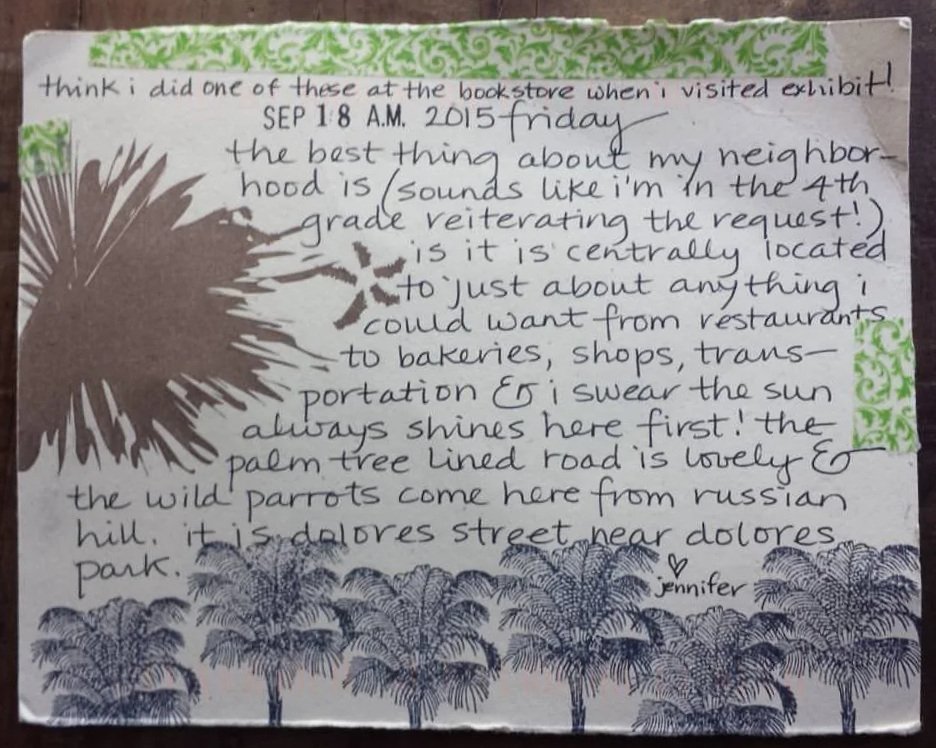 think i did one of these at the bookstore when i visited exhibit!
SEP 18 A.M. 2015 friday
the best thing about my neighbor-
hood is (sounds like i'm in the 4th
grade reiterating the request!)
is it is centrally located
to just about anything i
could want from restaurants
to bakeries, shops, trans-
portation & i swear the sun
always shines here first! the
palm tree lined road is lovely &
the wild parrots come here from russian
hill. it is dolores street near dolores
park.
jennifer